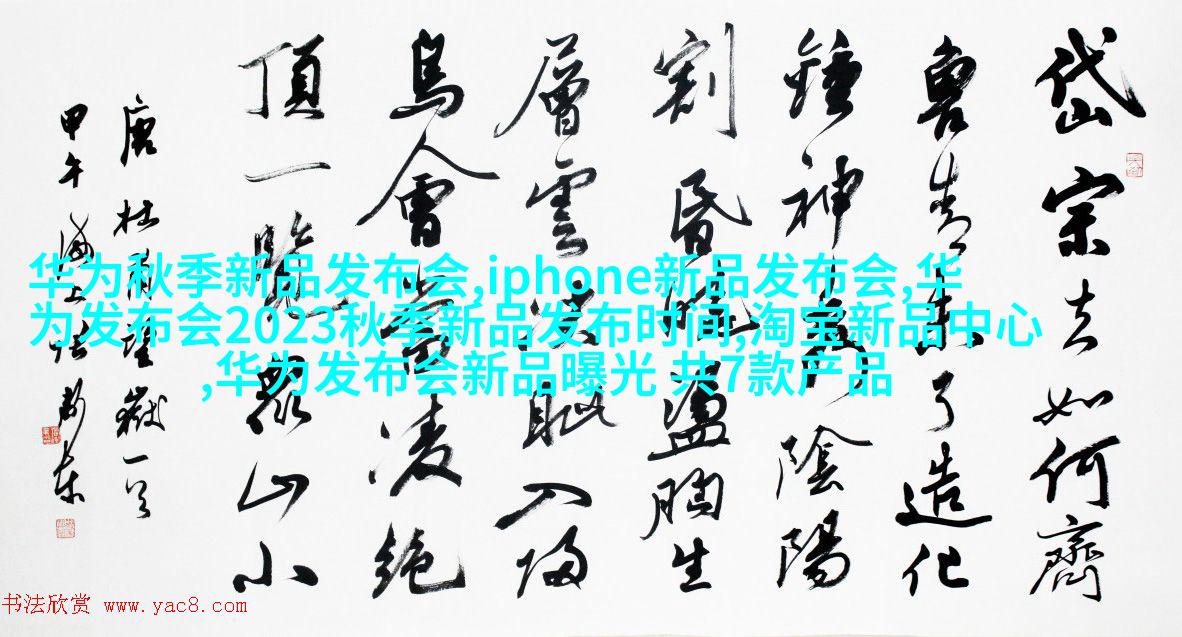 岱宗夫如何齊
魯青未了造化
鍾神秀陰陽
割昏曉盪胸生
層雲決眦入歸
鳥會當凌絕
頂一覽眾山小
唐杜甫望嶽一首
甲午海上
华为秋季新品发布会,iphone新品发布会,华
为发布会2023秋季新品发布时间,淘宝新品中心
,华为发布会新品曝光 共7款产品
书法欣赏 www.yac8.com